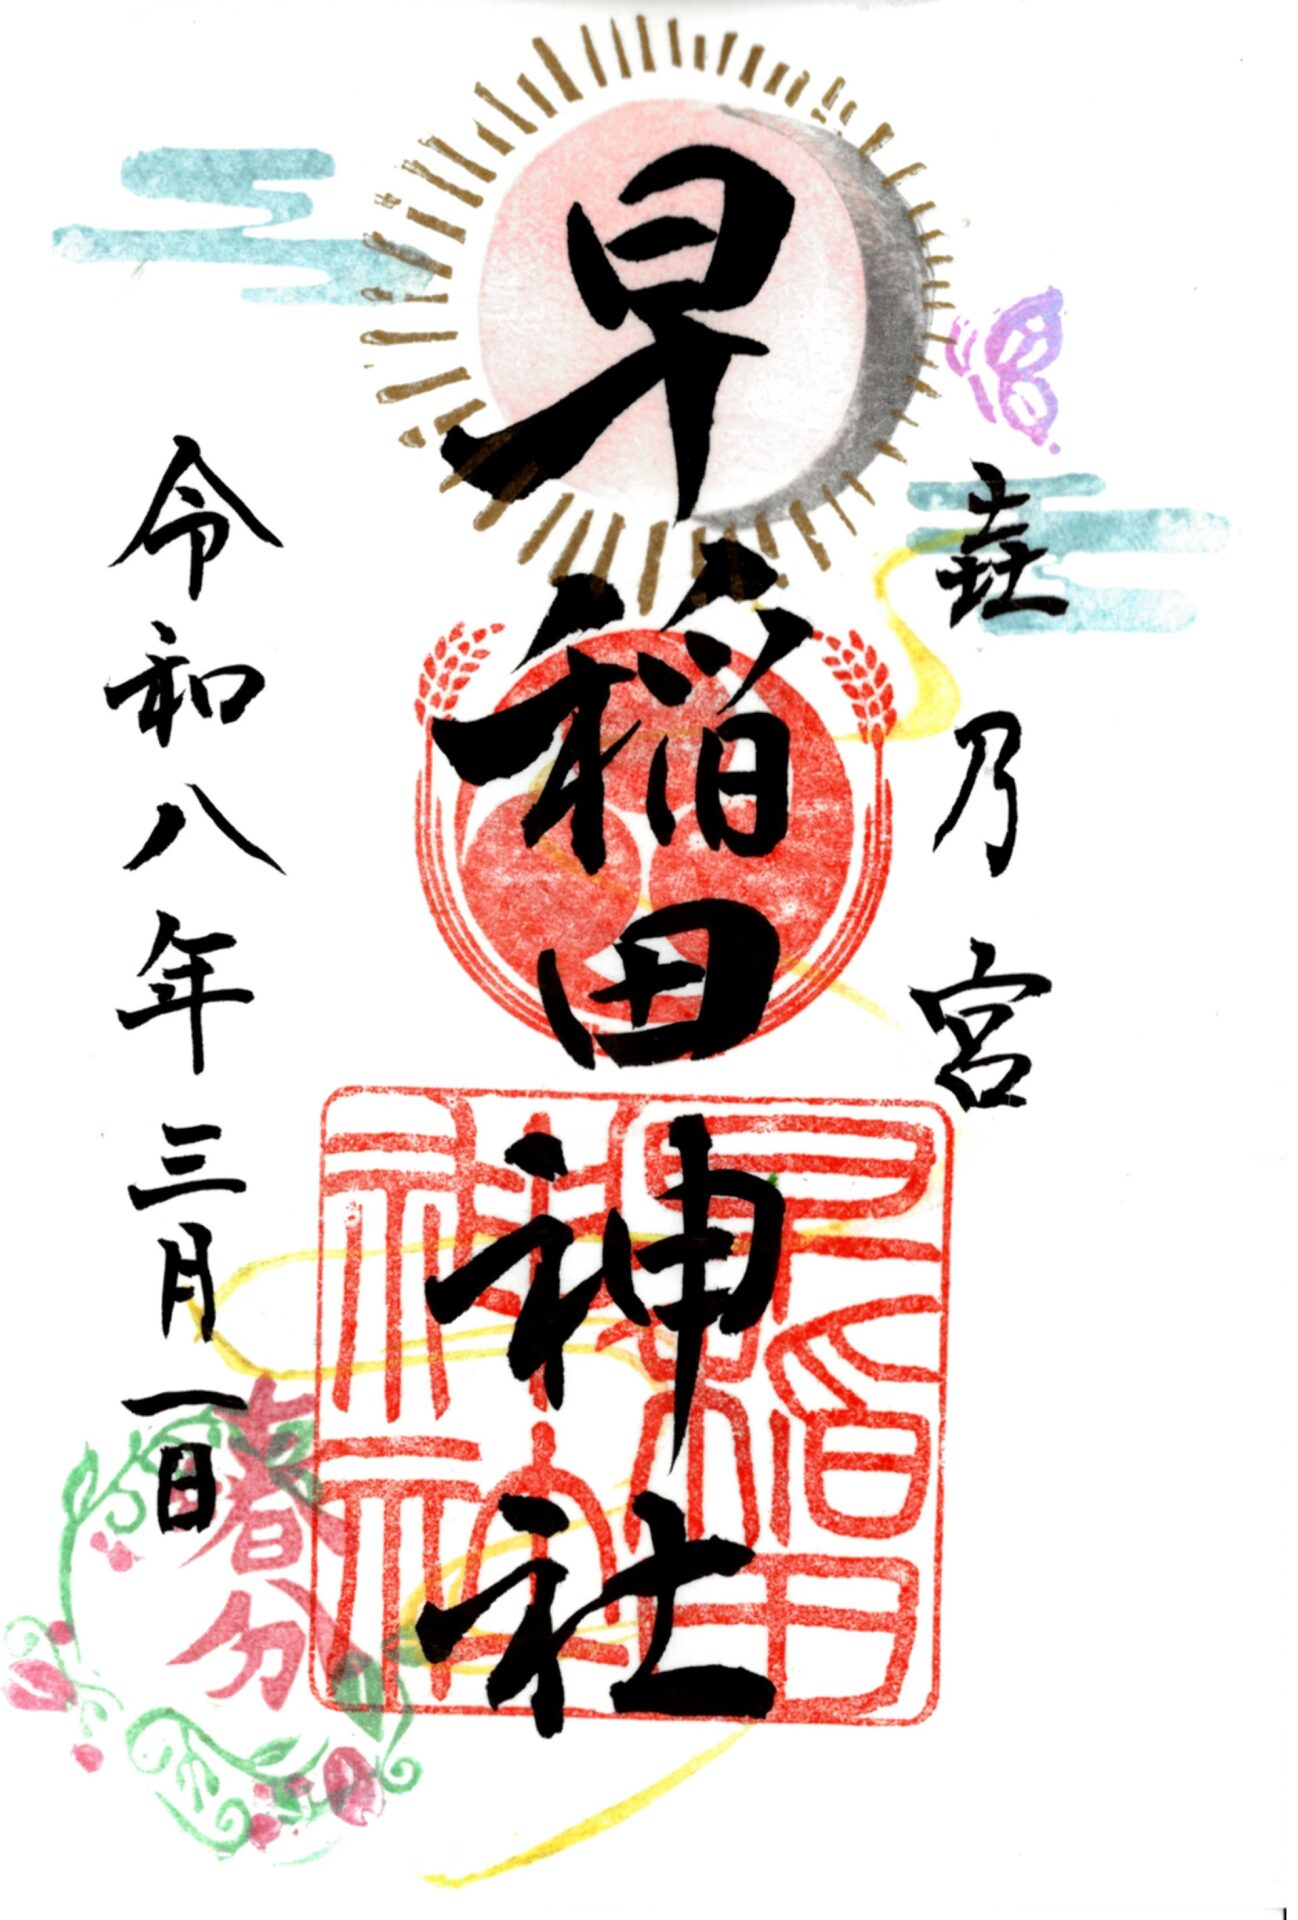 乃宮
早稲田神社
令和八年三月一日
春分
早稲田神社